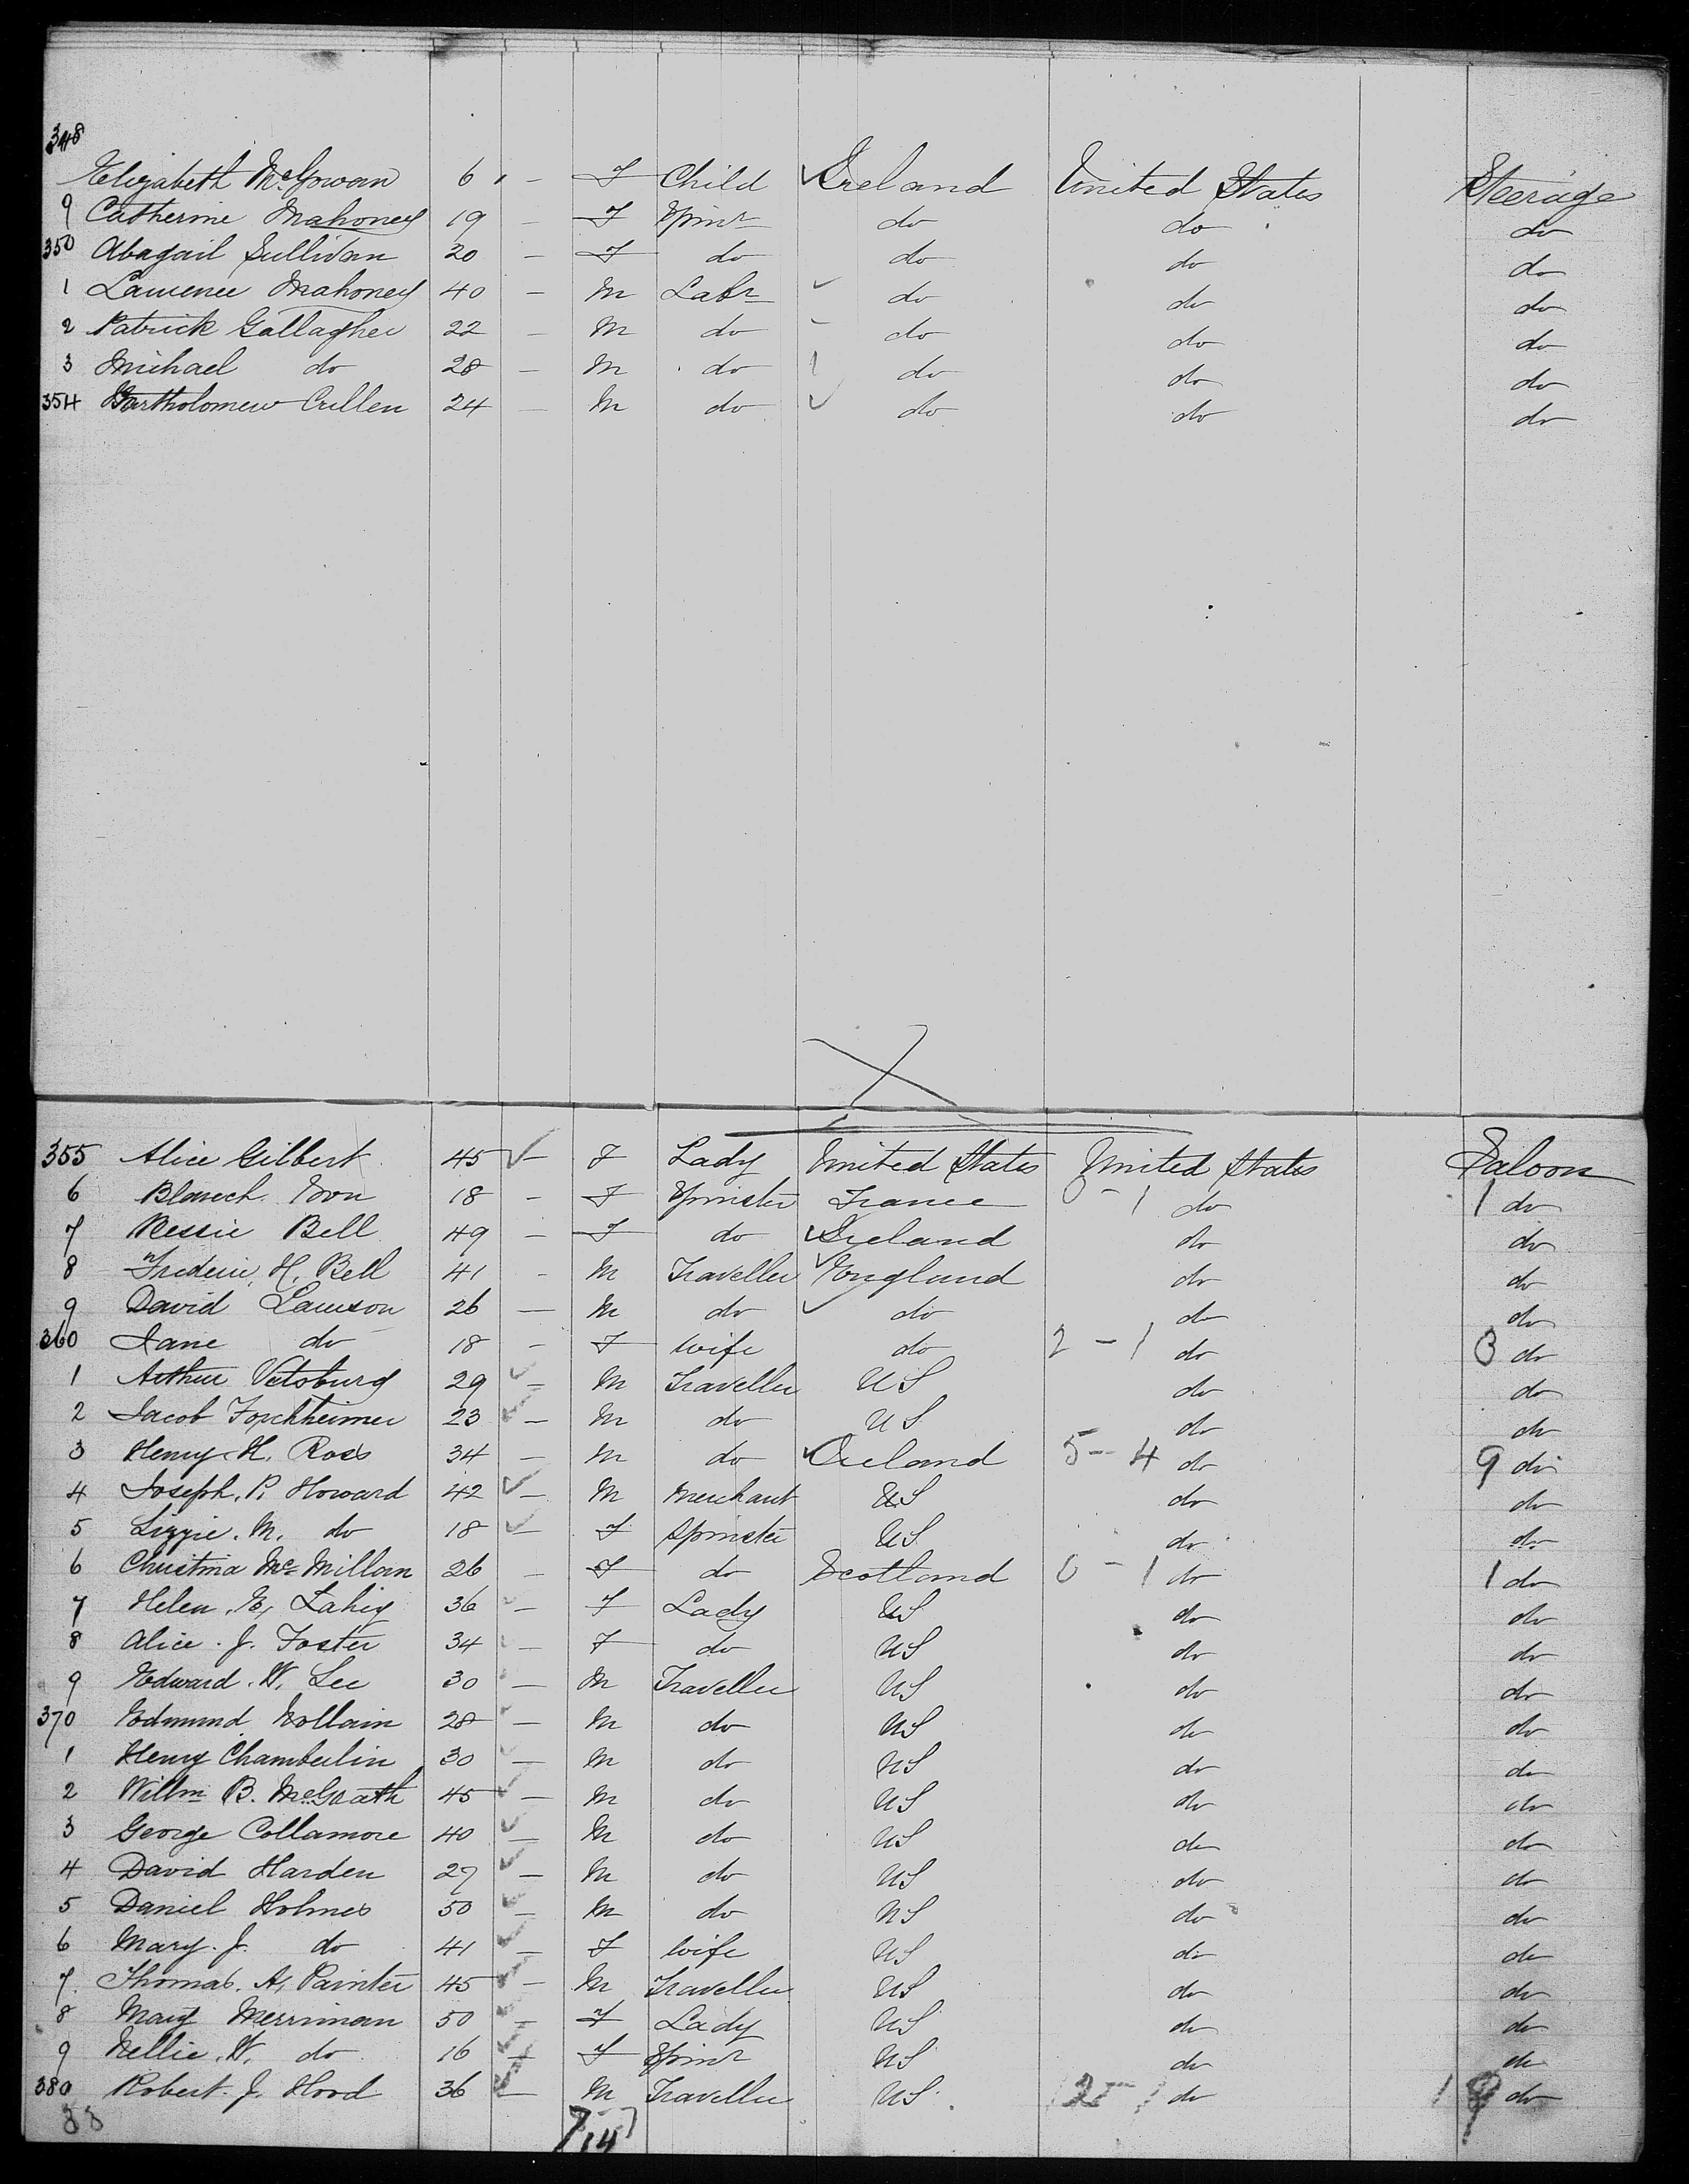 348 Elizabeth McGowan 6 - F Child Ireland United States Steerage
9 Catherine Mahoney 19 - F Spinr do do do
350 Abagail Sullivan 20 - F do do do do
1 Lawrence Mahoney 40 - M Labr do do do
2 Patrick Gallagher 22 - M do do do do
3 Michael do 28 - M do do do do
354 Bartholomew Cullen 24 - M do do do do
355 Alice Gilbert 45 - F Lady United States United States Saloon
6 18 - F Spinster France 0 - 1 do 1 do
7 Bessie Bell 49 - F do Ireland do do
8 Frederic, H. Bell 41 - M Traveller England do do
9 David Lawson 26 - M do do do do
360 Jane do 18 - F wife do 2 - 1 do 3 do
1 Arthur Vetsburg 29 - M Traveller US do do
2 Jacob Forchheimer 23 - M do US do do
3 Henry H. Ross 34 - M do Ireland 5 - 4 do 9 do
4 Joseph. P. Howard 42 - M Merchant US do do
5 Lizzie. M. do 18 - F Spinster US do do
6 Christina McMillan 26 - F do Scotland 0 - 1 do 1 do
7 Helen. E. 36 - F Lady US do do
8 Alice. J. Foster 34 - F do US do do
9 Edward. W. Lee 30 - M Traveller US do do
370 Edmund 28 - M do US do do
1 Henry Chamberlin 30 - M do US do do
2 Willm B. McGrath 45 - M do US do do
3 George Collamore 40 - M do US do do
4 David Harden 27 - M do US do do
5 Daniel Holmes 50 - M do US do do
6 Mary. J. do 41 - F wife US do do
7. Thomas. A. Painter 45 - M Traveller US do do
8 Mary Merriman 50 - F Lady US do do
9 Nellie. W. do 16 - F Spinr US do do
380 Robert. J. Hood 36 - M Traveller US do do
88